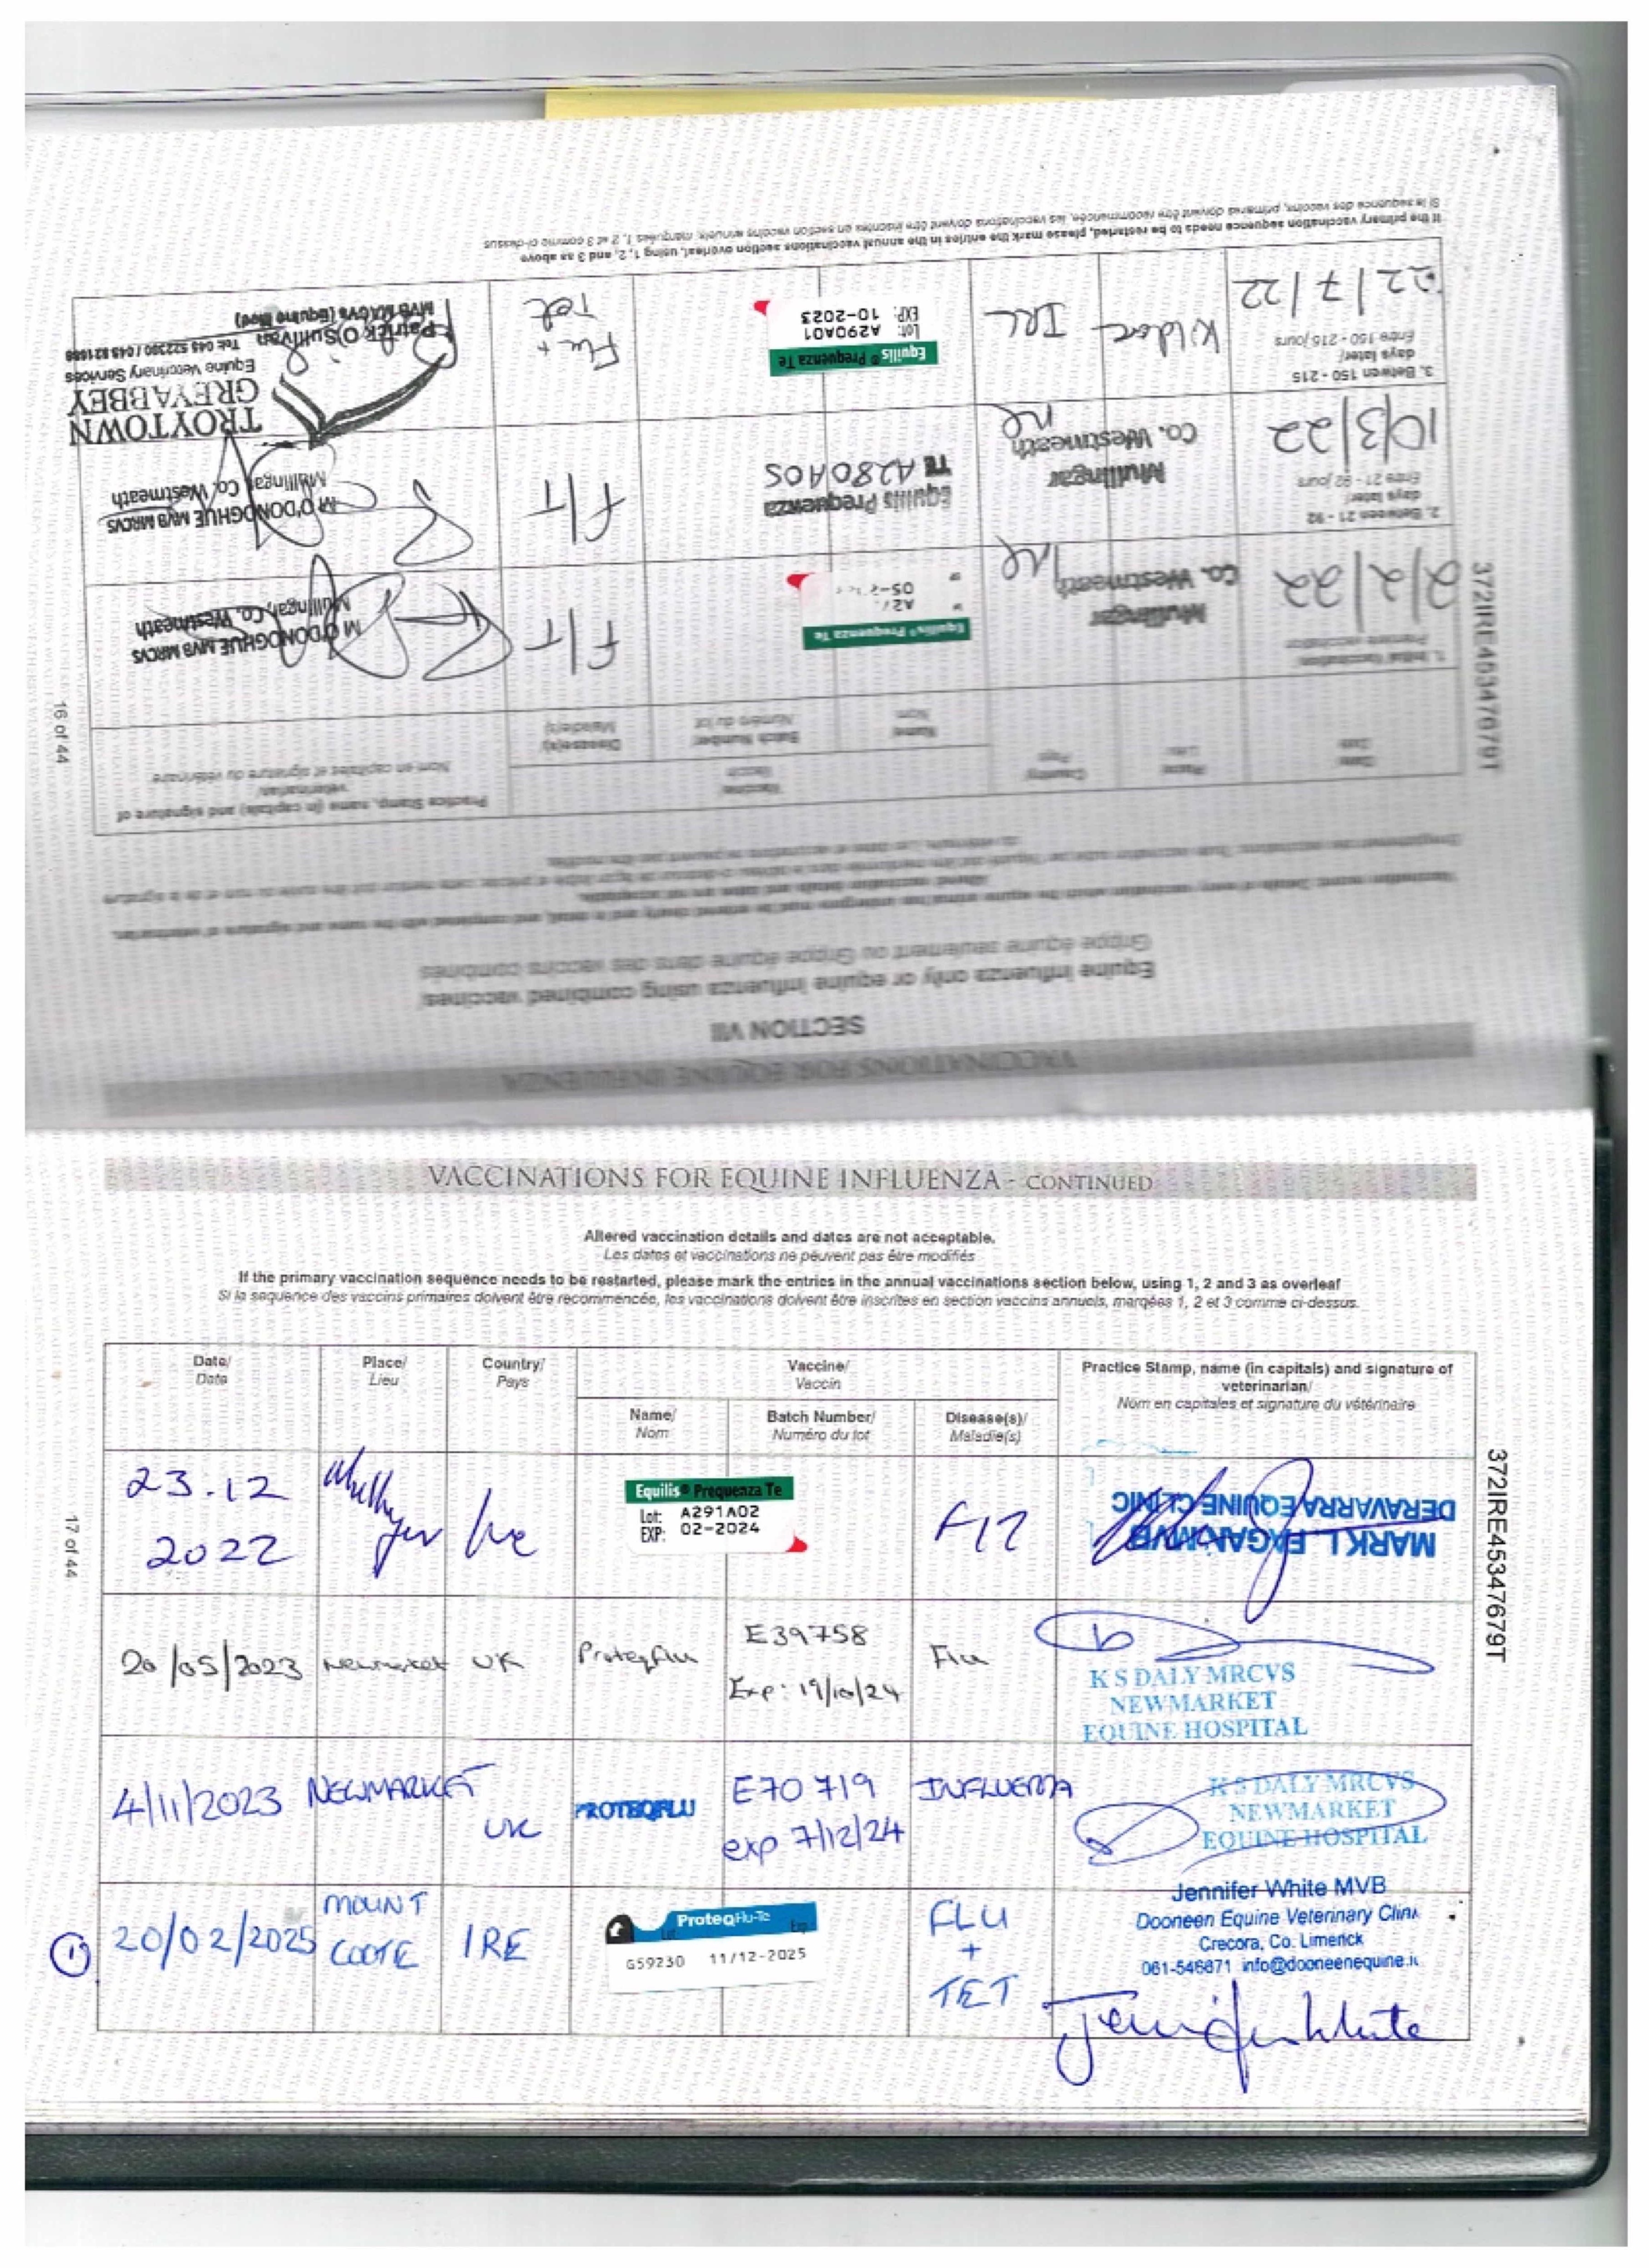 VACCINATIONS FOR EQUINE INFLUENZA
SECTION VIII
Equine influenza only or equine influenza using combined vaccines/
Grippe équine seulement ou Grippe équine dans des vaccins combinés
Vaccination record. Details of every vaccination which the equine animal has undergone must be entered clearly and in detail, and completed with the name and signature of veterinarian.
Altered vaccination details and dates are not acceptable.
Date/
Date
Place/
Lieu
Country/
Pays
Vaccine/
Vaccin
Name/
Nom
Batch Number/
Numéro du lot
Disease(s)/
Maladie(s)
Practice Stamp, name (in capitals) and signature of
veterinarian/
Nom en capitales et signature du vétérinaire
1. Initial Vaccination
Première vaccination
2/2/22
Mullingar
Co. Westmeath
Equilis® Prequenza Te
F/T
M O'DONOGHUE MVB MRCVS
Mullingar, Co. Westmeath
2. Between 21 - 92
days later/
Entre 21 - 92 jours
10/3/22
Mullingar
Co. Westmeath
Equilis Prequenza
TE A280A05
F/T
M O'DONOGHUE MVB MRCVS
Mullingar, Co. Westmeath
3. Between 150 - 215
days later/
Entre 150 - 215 jours
22/7/22
Kildare
IRL
Equilis® Prequenza Te
Lot: A290A01
EXP: 10-2023
Flu +
Tet
TROYTOWN
GREYABBEY
Equine Veterinary Services
Patrick O'Sullivan
MVB MACVS (Equine Med)
If the primary vaccination sequence needs to be restarted, please mark the entries in the annual vaccinations section overleaf, using 1, 2, and 3 as above
Si la sequence des vaccins, primaires doivent être recommencée, les vaccinations doivent être inscrites en section vaccins annuels, marquées 1, 2 et 3 comme ci-dessus
16 of 44
372IRE45347679T
VACCINATIONS FOR EQUINE INFLUENZA - CONTINUED
Altered vaccination details and dates are not acceptable.
Les dates et vaccinations ne peuvent pas être modifiés
If the primary vaccination sequence needs to be restarted, please mark the entries in the annual vaccinations section below, using 1, 2 and 3 as overleaf
Si la sequence des vaccins primaires doivent être recommencée, les vaccinations doivent être inscrites en section vaccins annuels, marqées 1, 2 et 3 comme ci-dessus.
Date/
Date
Place/
Lieu
Country/
Pays
Vaccine/
Vaccin
Name/
Nom
Batch Number/
Numéro du lot
Disease(s)/
Maladie(s)
Practice Stamp, name (in capitals) and signature of
veterinarian/
Nom en capitales et signature du vétérinaire
23.12
2022
Mullingar
Ire
Equilis® Prequenza Te
Lot: A291A02
EXP: 02-2024
MARK L. FAGAN MVB
DERAVARRA EQUINE CLINIC
20/05/2023
Newmarket
UK
Proteqflu
E39758
Exp: 19/10/24
Flu
K S DALY MRCVS
NEWMARKET
EQUINE HOSPITAL
4/11/2023
NEWMARKET
UK
PROTEQFLU
E70719
exp 7/12/24
INFLUENZA
K S DALY MRCVS
NEWMARKET
EQUINE HOSPITAL
1
20/02/2025
MOUNT
COOTE
IRE
ProteqFlu-Te
Lot Exp
G59230 11/12-2025
FLU
+
TET
Jennifer White MVB
Dooneen Equine Veterinary Clinic
Crecora, Co. Limerick
061-546871 info@dooneenequine.ie
Jennifer White
17 of 44
372IRE45347679T